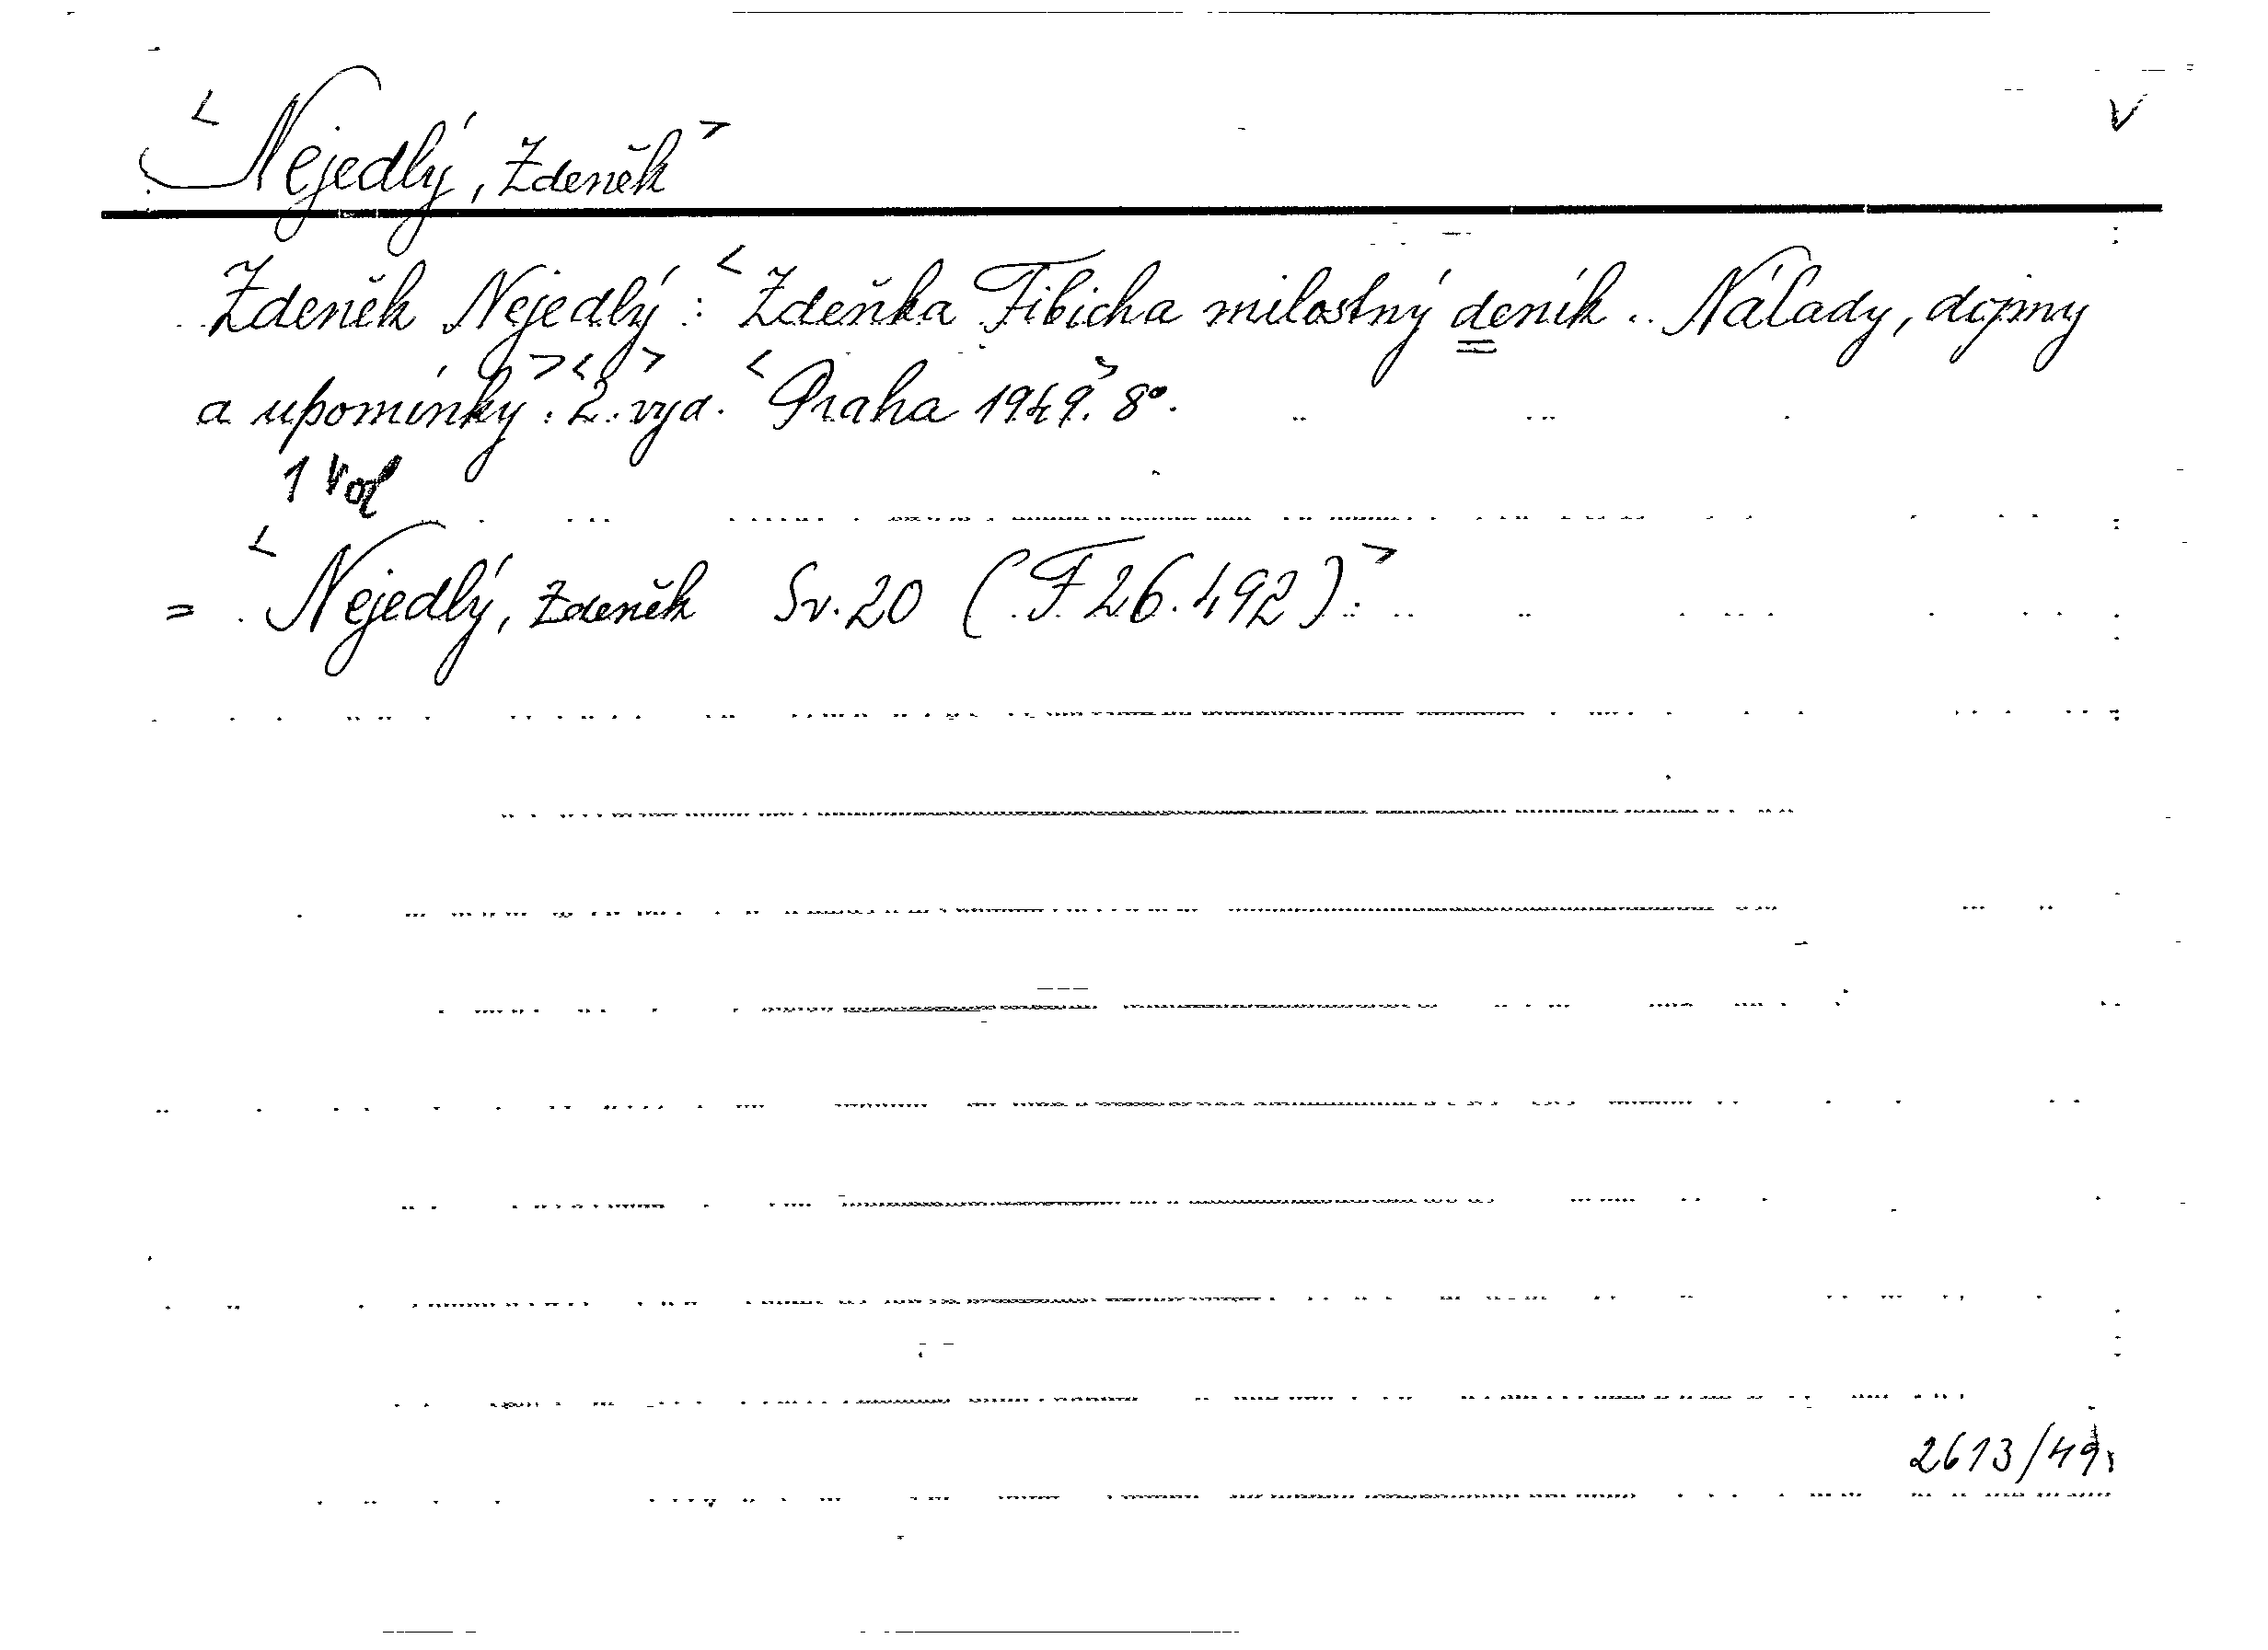 <Nejedlý, Zdeněk> V
Zdeněk Nejedlý: <Zdeňka Fibicha milostný deník. Nálady, dojmy
a upomínky>. <2.> vyd. <Praha 1949.> 8°.
1 Vol
= <Nejedlý, Zdeněk Sv. 20 (F 26.492)>.
2613/49.